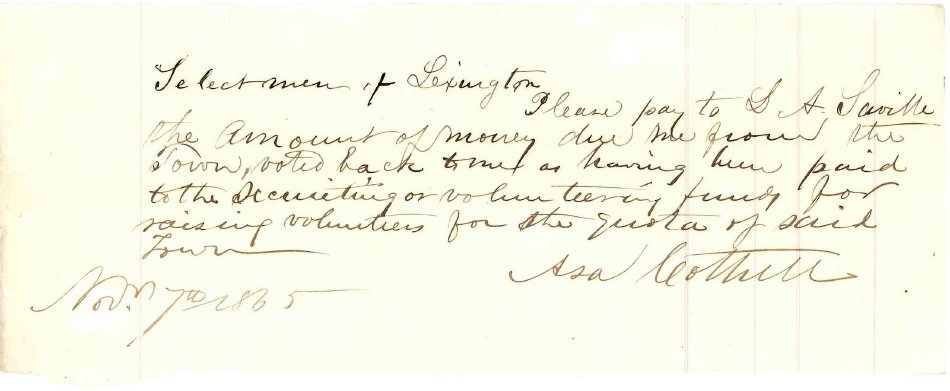 Select men of Lexington
Please pay to L A. Saville
the Amount of money due me from the
Town, voted back to me as having been paid
to the recruiting or volunteering funds for
raising volunteers for the quota of said
Town
Asa Cottrell
Novr 7th 1865